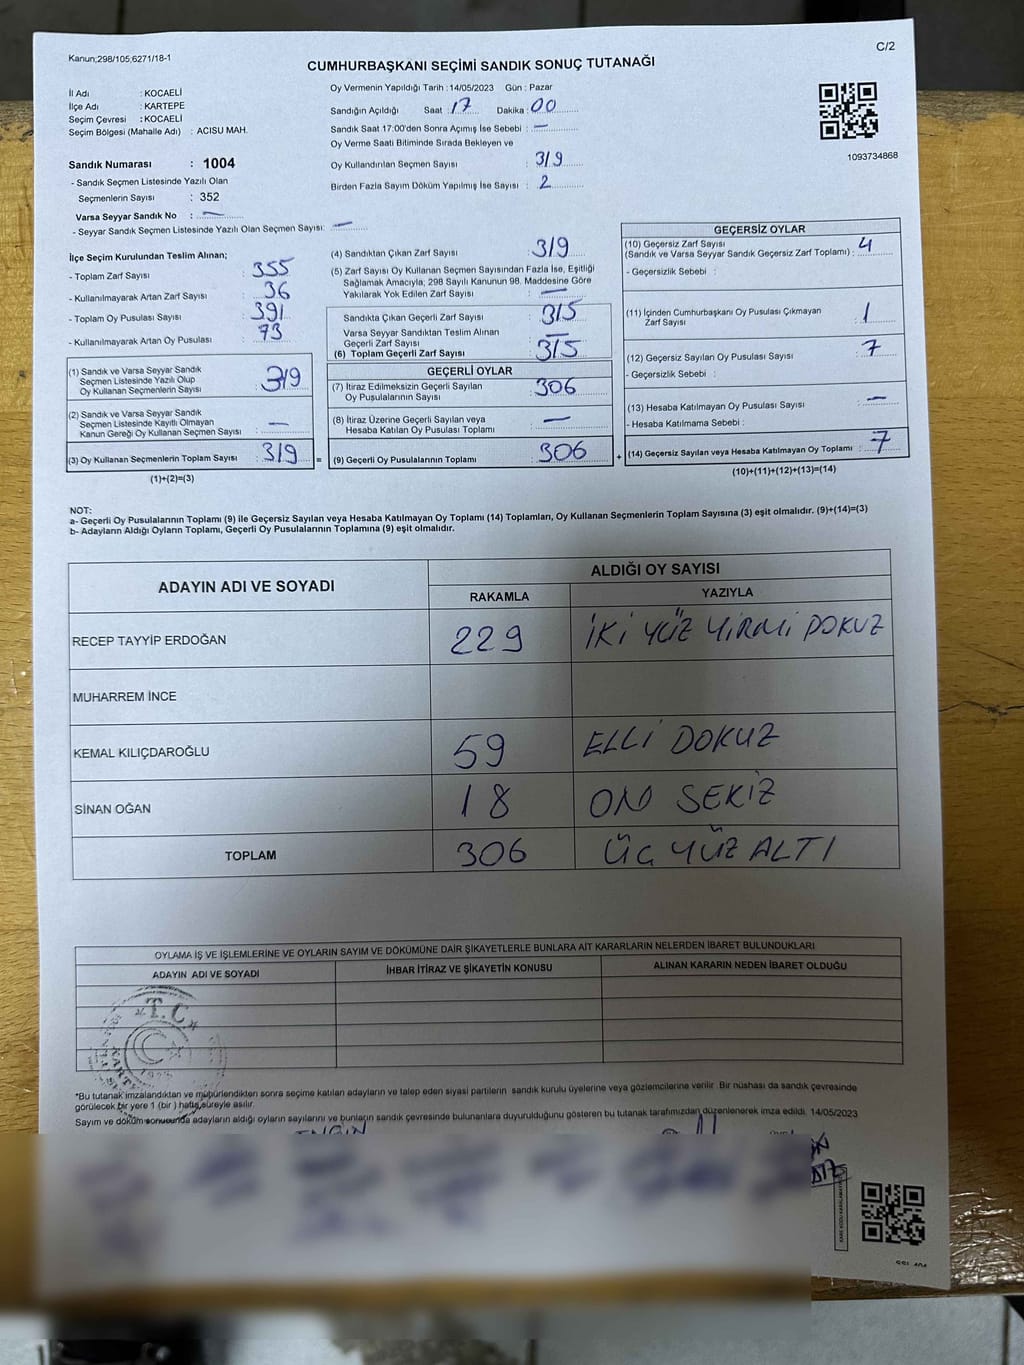 Kanun;298/105;6271/18-1
C/2
CUMHURBAŞKANI SEÇİMİ SANDIK SONUÇ TUTANAĞI
İl Adı : KOCAELİ
İlçe Adı : KARTEPE
Seçim Çevresi : KOCAELİ
Seçim Bölgesi (Mahalle Adı) : ACISU MAH.
Sandık Numarası : 1004
- Sandık Seçmen Listesinde Yazılı Olan
Seçmenlerin Sayısı : 352
Varsa Seyyar Sandık No : —
- Seyyar Sandık Seçmen Listesinde Yazılı Olan Seçmen Sayısı: —
Oy Vermenin Yapıldığı Tarih : 14/05/2023 Gün : Pazar
Sandığın Açıldığı Saat : 17 Dakika : 00
Sandık Saat 17:00'den Sonra Açımış İse Sebebi : —
Oy Verme Saati Bitiminde Sırada Bekleyen ve
Oy Kullandırılan Seçmen Sayısı : 319
Birden Fazla Sayım Döküm Yapılmış İse Sayısı : 2
1093734868
İlçe Seçim Kurulundan Teslim Alınan;
- Toplam Zarf Sayısı : 355
- Kullanılmayarak Artan Zarf Sayısı : 36
- Toplam Oy Pusulası Sayısı : 391
- Kullanılmayarak Artan Oy Pusulası : 73
(1) Sandık ve Varsa Seyyar Sandık
Seçmen Listesinde Yazılı Olup
Oy Kullanan Seçmenlerin Sayısı : 319
(2) Sandık ve Varsa Seyyar Sandık
Seçmen Listesinde Kayıtlı Olmayan
Kanun Gereği Oy Kullanan Seçmen Sayısı : —
(3) Oy Kullanan Seçmenlerin Toplam Sayısı : 319 =
(1)+(2)=(3)
(4) Sandıktan Çıkan Zarf Sayısı : 319
(5) Zarf Sayısı Oy Kullanan Seçmen Sayısından Fazla İse, Eşitliği
Sağlamak Amacıyla, 298 Sayılı Kanunun 98. Maddesine Göre
Yakılarak Yok Edilen Zarf Sayısı : —
Sandıkta Çıkan Geçerli Zarf Sayısı : 315
Varsa Seyyar Sandıktan Teslim Alınan
Geçerli Zarf Sayısı : —
(6) Toplam Geçerli Zarf Sayısı : 315
GEÇERLİ OYLAR
(7) İtiraz Edilmeksizin Geçerli Sayılan
Oy Pusulalarının Sayısı : 306
(8) İtiraz Üzerine Geçerli Sayılan veya
Hesaba Katılan Oy Pusulası Toplamı : —
(9) Geçerli Oy Pusulalarının Toplamı : 306 +
GEÇERSİZ OYLAR
(10) Geçersiz Zarf Sayısı
(Sandık ve Varsa Seyyar Sandık Geçersiz Zarf Toplamı) : 4
- Geçersizlik Sebebi :
(11) İçinden Cumhurbaşkanı Oy Pusulası Çıkmayan
Zarf Sayısı : 1
(12) Geçersiz Sayılan Oy Pusulası Sayısı : 7
- Geçersizlik Sebebi :
(13) Hesaba Katılmayan Oy Pusulası Sayısı : —
- Hesaba Katılmama Sebebi :
(14) Geçersiz Sayılan veya Hesaba Katılmayan Oy Toplamı : 7
(10)+(11)+(12)+(13)=(14)
NOT:
a- Geçerli Oy Pusulalarının Toplamı (9) ile Geçersiz Sayılan veya Hesaba Katılmayan Oy Toplamı (14) Toplamları, Oy Kullanan Seçmenlerin Toplam Sayısına (3) eşit olmalıdır. (9)+(14)=(3)
b- Adayların Aldığı Oyların Toplamı, Geçerli Oy Pusulalarının Toplamına (9) eşit olmalıdır.
ADAYIN ADI VE SOYADI ALDIĞI OY SAYISI
RAKAMLA YAZIYLA
RECEP TAYYİP ERDOĞAN 229 İKİ YÜZ YİRMİ DOKUZ
MUHARREM İNCE
KEMAL KILIÇDAROĞLU 59 ELLİ DOKUZ
SİNAN OĞAN 18 ON SEKİZ
TOPLAM 306 ÜÇ YÜZ ALTI
OYLAMA İŞ VE İŞLEMLERİNE VE OYLARIN SAYIM VE DÖKÜMÜNE DAİR ŞİKAYETLERLE BUNLARA AİT KARARLARIN NELERDEN İBARET BULUNDUKLARI
ADAYIN ADI VE SOYADI İHBAR İTİRAZ VE ŞİKAYETİN KONUSU ALINAN KARARIN NEDEN İBARET OLDUĞU
T.C.
*Bu tutanak imzalandıktan ve mühürlendikten sonra seçime katılan adayların ve talep eden siyasi partilerin sandık kurulu üyelerine veya gözlemcilerine verilir. Bir nüshası da sandık çevresinde
görülecek bir yere 1 (bir) hafta süreyle asılır.
Sayım ve döküm sonucunda adayların aldığı oyların sayılarını ve bunların sandık çevresinde bulunanlara duyurulduğunu gösteren bu tutanak tarafımızdan düzenlenerek imza edildi. 14/05/2023
ENGİN